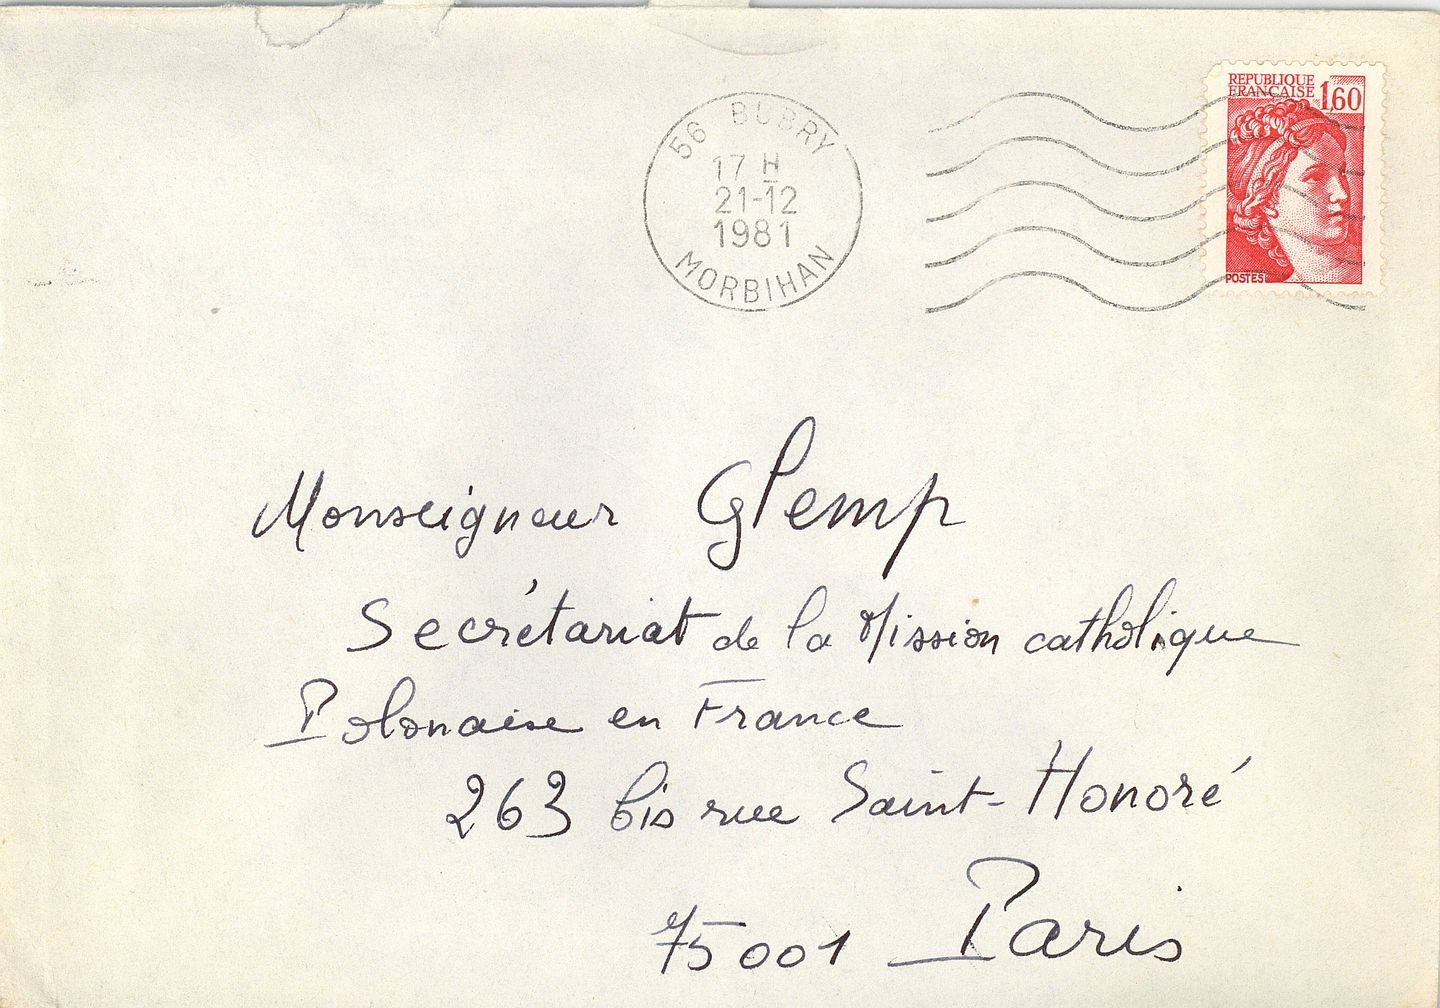 56 BUBRY
17 H
21-12
1981
MORBIHAN
REPUBLIQUE
FRANÇAISE 1,60
POSTES
Monseigneur Glemp
Secrétariat de la Mission catholique
Polonaise en France
263 bis rue Saint-Honoré
75001 Paris